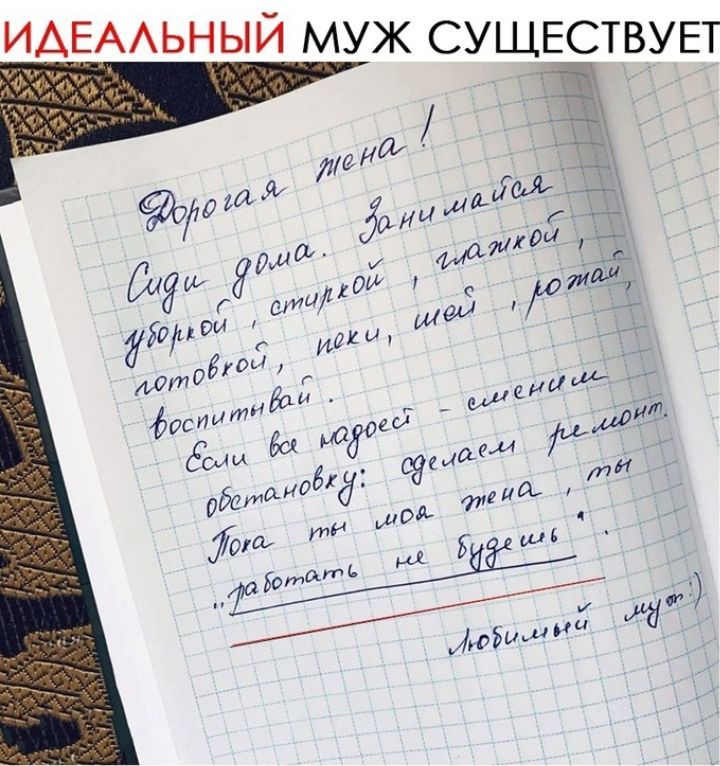 ИДЕАЛЬНЫЙ МУЖ СУЩЕСТВУЕТ
Дорогая жена!
Сиди дома. Занимайся
уборкой, стиркой, глажкой,
готовкой, пеки, шей, рожай,
воспитывай.
Если все надоест - сменим
обстановку: сделаем ремонт.
Пока ты моя жена, ты
„работать не будешь".
Любимый муж:)